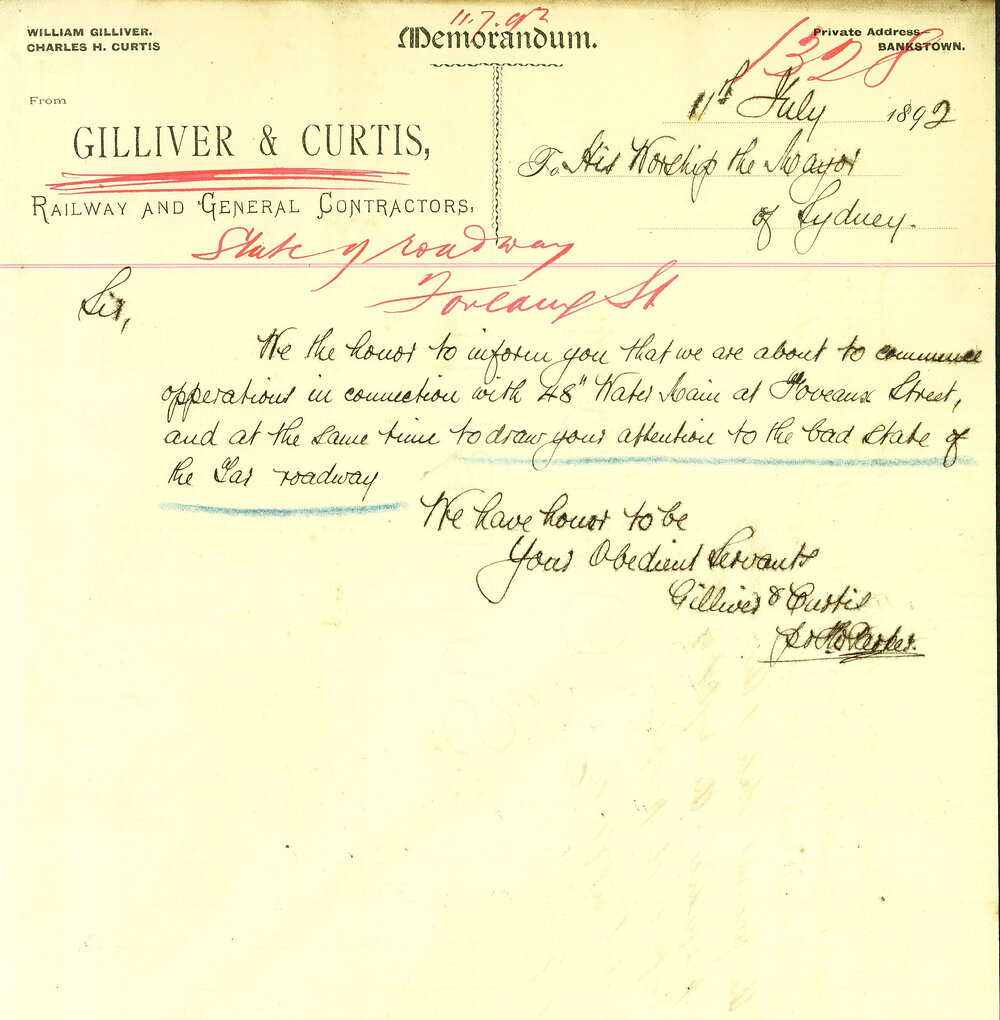 11.7.92
WILLIAM GILLIVER.
CHARLES H. CURTIS
Memorandum.
Private Address
BANKSTOWN.
1328
From
GILLIVER & CURTIS,
RAILWAY AND GENERAL CONTRACTORS,
11th July 1892
To His Worship the Mayor
of Sydney.
State of roadway
Foveaux St
Sir,
We the honor to inform you that we are about to commence
opperations in connection with 48" Water Main at Foveaux Street,
and at the same time to draw your attention to the bad state of
the Tar roadway
We have honor to be
Your Obedient Servants
Gilliver & Curtis